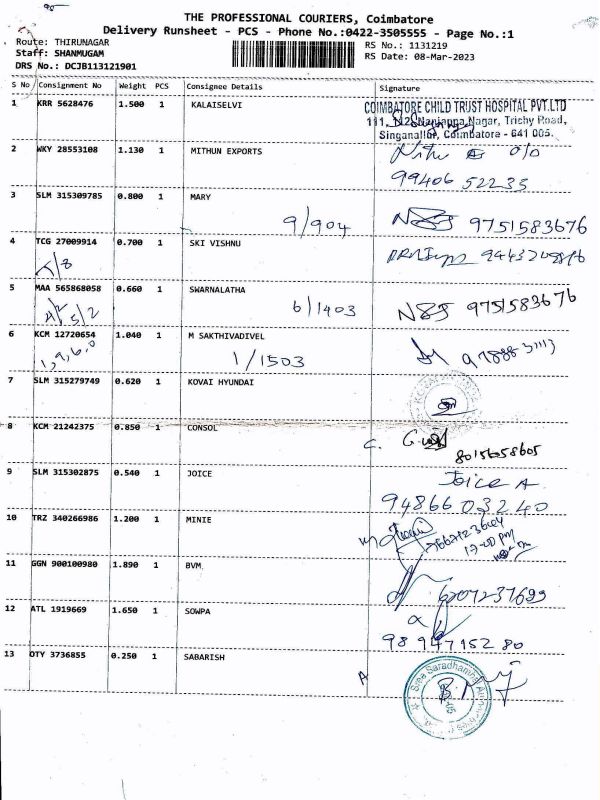 THE PROFESSIONAL COURIERS, Coimbatore
Delivery Runsheet - PCS - Phone No.:0422-3505555 - Page No.:1
Route: THIRUNAGAR
Staff: SHANMUGAM
DRS No.: DCJB113121901
RS No.: 1131219
RS Date: 08-Mar-2023
S No Consignment No Weight PCS Consignee Details Signature
1 KRR 5628476 1.500 1 KALAISELVI
COIMBATORE CHILD TRUST HOSPITAL PVT.LTD
111, 112, Nanjappa Nagar, Trichy Road,
Singanallur, Coimbatore - 641 005.
2 WKY 28553108 1.130 1 MITHUN EXPORTS
99406 52235
3 SLM 315309785 0.800 1 MARY
9/904 9751583676
4 TCG 27009914 0.700 1 SKI VISHNU
5 MAA 565868058 0.660 1 SWARNALATHA
6/1403 9751583676
6 KCM 12720654 1.040 1 M SAKTHIVADIVEL
1/1503
7 SLM 315279749 0.620 1 KOVAI HYUNDAI
8 KCM 21242375 0.850 1 CONSOL
80156058605
9 SLM 315302875 0.540 1 JOICE
Joice A
9486603240
10 TRZ 340266986 1.200 1 MINIE
11 GGN 900100980 1.890 1 BVM
12 ATL 1919669 1.650 1 SOWPA
98 947152 80
13 OTY 3736855 0.250 1 SABARISH